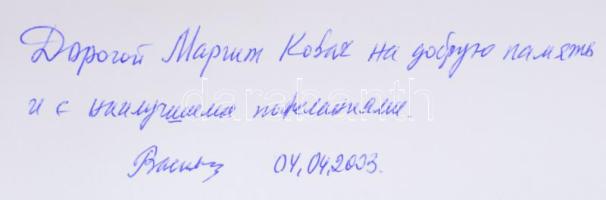 Дорогой Маргит Ковач на добрую память
и с наилучшими пожеланиями.
04,04,2003.
darabanth